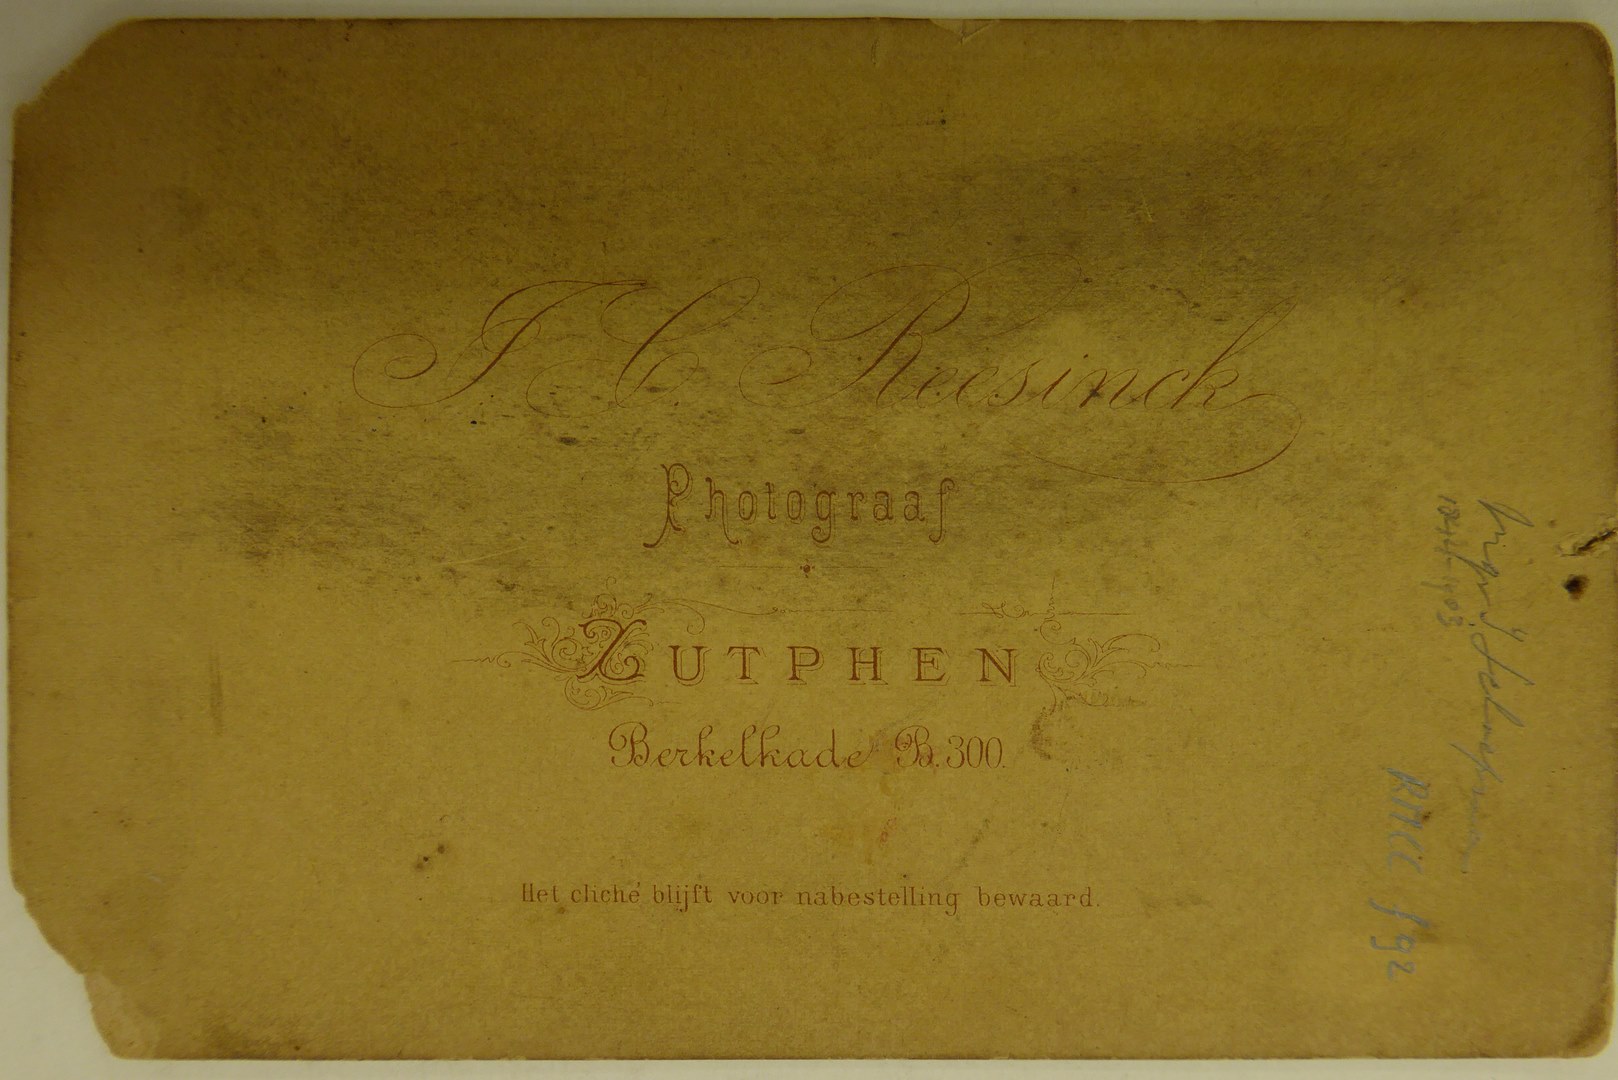 J C Reesinck
Photograaf
ZUTPHEN
Berkelkade B. 300.
Het cliché blijft voor nabestelling bewaard.